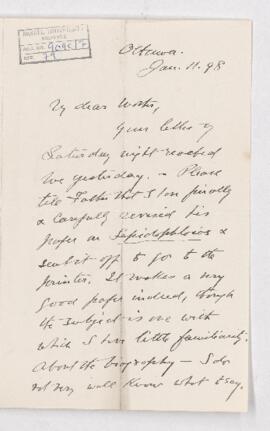 Ottawa.
Jan. 11. 98
My dear
Your letter of
Saturday night reached
me yesterday. – Please
tell Father that I have finally
& carefully revised his
paper on Lepidophloios &
sent it off to go to the
printer. It makes a very
good paper indeed, though
the subject is one with
which I have little familiarity.
About the biography – I do
not very well know what to say.